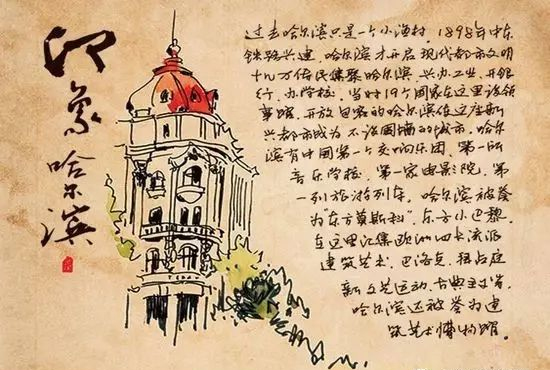 印象哈尔滨
过去哈尔滨只是一个小渔村,1898年中东
铁路兴建,哈尔滨才开启现代都市文明
十几万侨民集聚哈尔滨,兴办工业,开银
行,办学校,当时19个国家在这里设领
事馆,开放包容的哈尔滨使这座新
兴都市成为不设围墙的城市,哈尔
滨有中国第一个交响乐团、第一所
音乐学校、第一家电影院、第
一列旅游列车。哈尔滨被誉
为“东方莫斯科”,东方小巴黎。
在这里汇集欧洲四大流派
建筑艺术,巴洛克,拜占庭
新文艺运动,古典主义等,
哈尔滨还被誉为建
筑艺术博物馆。